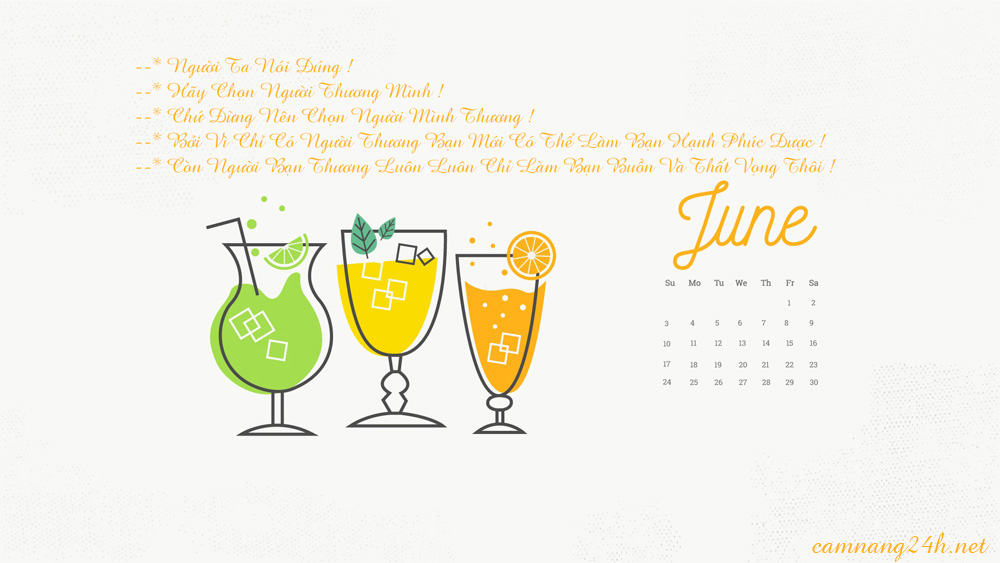 --* Người Ta Nói Đúng !
--* Hãy Chọn Người Thương Mình !
--* Chứ Đừng Nên Chọn Người Mình Thương !
--* Bởi Vì Chỉ Có Người Thương Bạn Mới Có Thể Làm Bạn Hạnh Phúc Được !
--* Còn Người Bạn Thương Luôn Luôn Chỉ Làm Bạn Buồn Và Thất Vọng Thôi !
June
Su Mo Tu We Th Fr Sa
1 2
3 4 5 6 7 8 9
10 11 12 13 14 15 16
17 18 19 20 21 22 23
24 25 26 27 28 29 30
camnang24h.net